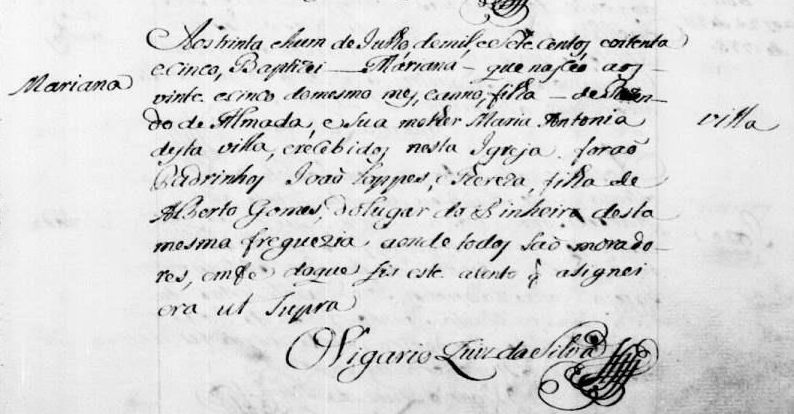 Aos trinta e hum de Julho de mil, e Sete Centos, e oitenta
e cinco, Baptizei Mariana que nasceo aos
Mariana
vinte e cinco do mesmo mes, e anno, filha de
do de Almada, e sua molher Maria Antonia
villa
desta villa, e recebidos nesta Igreja. forão
Padrinhos João Loppes, e Tereza, filha de
Alberto Gomes, do lugar do Pinheiro desta
mesma freguezia aonde todos são morado-
res, em fe do que fis este asento q̃ asignei
era ut Supra
O Vigario Luiz da Silva